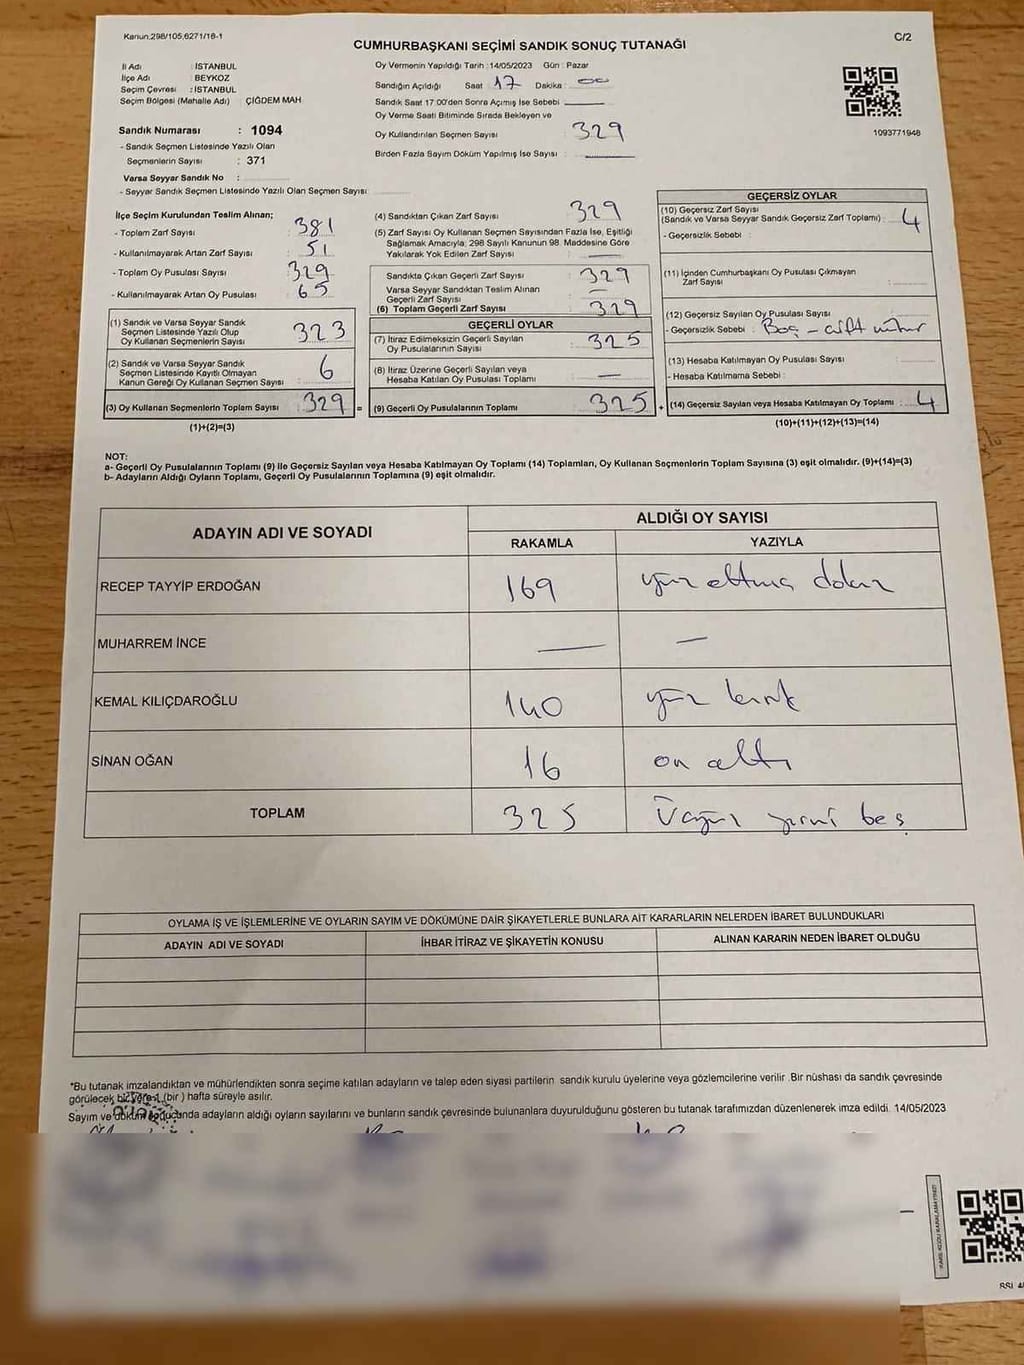 Kanun:298/105,6271/16-1
C/2
CUMHURBAŞKANI SEÇİMİ SANDIK SONUÇ TUTANAĞI
İl Adı : İSTANBUL
İlçe Adı : BEYKOZ
Seçim Çevresi : İSTANBUL
Seçim Bölgesi (Mahalle Adı) : ÇİĞDEM MAH
Sandık Numarası : 1094
- Sandık Seçmen Listesinde Yazılı Olan
Seçmenlerin Sayısı : 371
Varsa Seyyar Sandık No :
- Seyyar Sandık Seçmen Listesinde Yazılı Olan Seçmen Sayısı
Oy Vermenin Yapıldığı Tarih :14/05/2023 Gün : Pazar
Sandığın Açıldığı Saat 17 Dakika : 00
Sandık Saat 17:00'den Sonra Açmış İse Sebebi
Oy Verme Saati Bitiminde Sırada Bekleyen ve
Oy Kullandırılan Seçmen Sayısı : 329
Birden Fazla Sayım Döküm Yapılmış İse Sayısı :
1093771948
İlçe Seçim Kurulundan Teslim Alınan;
- Toplam Zarf Sayısı : 381
- Kullanılmayarak Artan Zarf Sayısı : 51
- Toplam Oy Pusulası Sayısı : 329
- Kullanılmayarak Artan Oy Pusulası : 65
(1) Sandık ve Varsa Seyyar Sandık
Seçmen Listesinde Yazılı Olup
Oy Kullanan Seçmenlerin Sayısı : 323
(2) Sandık ve Varsa Seyyar Sandık
Seçmen Listesinde Kayıtlı Olmayan
Kanun Gereği Oy Kullanan Seçmen Sayısı : 6
(3) Oy Kullanan Seçmenlerin Toplam Sayısı : 329 =
(1)+(2)=(3)
(4) Sandıktan Çıkan Zarf Sayısı : 329
(5) Zarf Sayısı Oy Kullanan Seçmen Sayısından Fazla İse, Eşitliği
Sağlamak Amacıyla; 298 Sayılı Kanunun 98. Maddesine Göre
Yakılarak Yok Edilen Zarf Sayısı : —
Sandıkta Çıkan Geçerli Zarf Sayısı : 329
Varsa Seyyar Sandıktan Teslim Alınan
Geçerli Zarf Sayısı : —
(6) Toplam Geçerli Zarf Sayısı : 329
GEÇERLİ OYLAR
(7) İtiraz Edilmeksizin Geçerli Sayılan
Oy Pusulalarının Sayısı : 325
(8) İtiraz Üzerine Geçerli Sayılan veya
Hesaba Katılan Oy Pusulası Toplamı : —
(9) Geçerli Oy Pusulalarının Toplamı : 325 +
GEÇERSİZ OYLAR
(10) Geçersiz Zarf Sayısı
(Sandık ve Varsa Seyyar Sandık Geçersiz Zarf Toplamı) : 4
- Geçersizlik Sebebi :
(11) İçinden Cumhurbaşkanı Oy Pusulası Çıkmayan
Zarf Sayısı :
(12) Geçersiz Sayılan Oy Pusulası Sayısı :
- Geçersizlik Sebebi : Boş - çift mühür
(13) Hesaba Katılmayan Oy Pusulası Sayısı :
- Hesaba Katılmama Sebebi :
(14) Geçersiz Sayılan veya Hesaba Katılmayan Oy Toplamı : 4
(10)+(11)+(12)+(13)=(14)
NOT:
a- Geçerli Oy Pusulalarının Toplamı (9) ile Geçersiz Sayılan veya Hesaba Katılmayan Oy Toplamı (14) Toplamları, Oy Kullanan Seçmenlerin Toplam Sayısına (3) eşit olmalıdır. (9)+(14)=(3)
b- Adayların Aldığı Oyların Toplamı, Geçerli Oy Pusulalarının Toplamına (9) eşit olmalıdır.
ADAYIN ADI VE SOYADI
ALDIĞI OY SAYISI
RAKAMLA YAZIYLA
RECEP TAYYİP ERDOĞAN 169 yüz altmış dokuz
MUHARREM İNCE — —
KEMAL KILIÇDAROĞLU 140 yüz kırk
SİNAN OĞAN 16 on altı
TOPLAM 325 Üçyüz yirmi beş
OYLAMA İŞ VE İŞLEMLERİNE VE OYLARIN SAYIM VE DÖKÜMÜNE DAİR ŞİKAYETLERLE BUNLARA AİT KARARLARIN NELERDEN İBARET BULUNDUKLARI
ADAYIN ADI VE SOYADI İHBAR İTİRAZ VE ŞİKAYETİN KONUSU ALINAN KARARIN NEDEN İBARET OLDUĞU
*Bu tutanak imzalandıktan ve mühürlendikten sonra seçime katılan adayların ve talep eden siyasi partilerin sandık kurulu üyelerine veya gözlemcilerine verilir. Bir nüshası da sandık çevresinde
görülecek bir yere 1 (bir) hafta süreyle asılır.
Sayım ve döküm sonucunda adayların aldığı oyların sayılarını ve bunların sandık çevresinde bulunanlara duyurulduğunu gösteren bu tutanak tarafımızdan düzenlenerek imza edildi. 14/05/2023